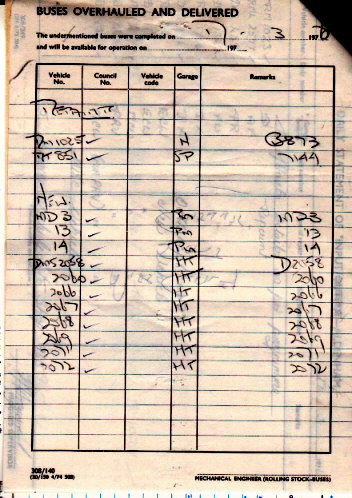 BUSES OVERHAULED AND DELIVERED
The undermentioned buses were completed on 1 3 197
and will be available for operation on 197
Vehicle No. Council No. Vehicle code Garage Remarks
RM1025 ✓ N B873
RT 851 ✓ SP 7144
NEW
MD 3 ✓ PS MD3
13 ✓ PS 13
14 ✓ PS 14
DMS2058 ✓ HT D2058
2060 ✓ HT 2060
2066 ✓ HT 2066
2067 ✓ HT 2067
2068 ✓ HT 2068
2069 ✓ HT 2069
2071 ✓ HT 2071
2072 ✓ HT 2072
308/140
(20/150 4/74 502)
MECHANICAL ENGINEER (ROLLING STOCK—BUSES)